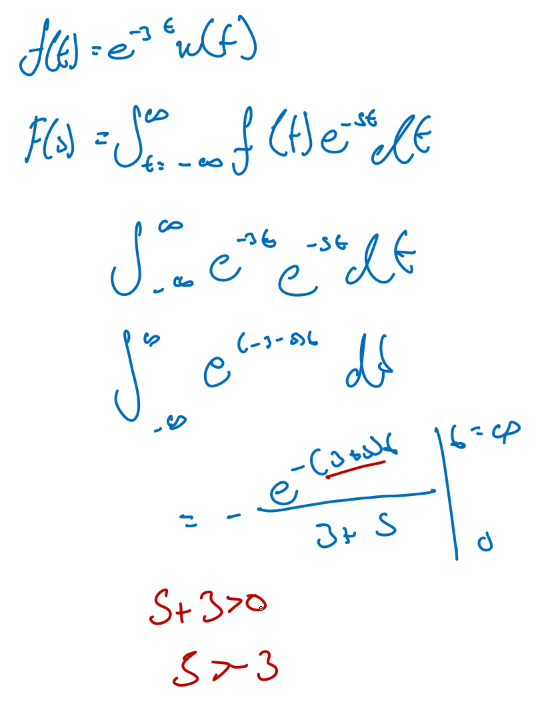 f(t) = e^{-3t} u(t)
F(s) = ∫_{t=-∞}^{∞} f(t) e^{-st} dt
∫_{-∞}^{∞} e^{-3t} e^{-st} dt
∫_{-∞}^{∞} e^{(-3-s)t} dt
= - e^{-(3+s)t} / (3+s) |_{0}^{t=∞}
S+3>0
S>-3